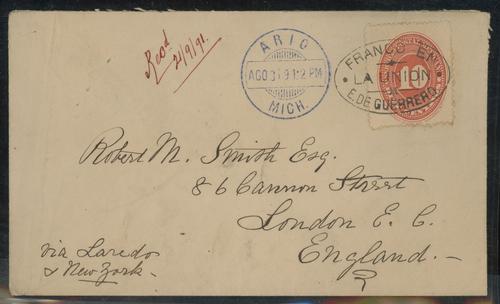 Recd
21/9/91.
ARIO
AGO 31 91 12 PM
MICH.
FRANCO EN
LA UNION
E. DE GUERRERO
10
Robert M. Smith Esq.
86 Cannon Street
London E. C.
England.
via Laredo
& New York.